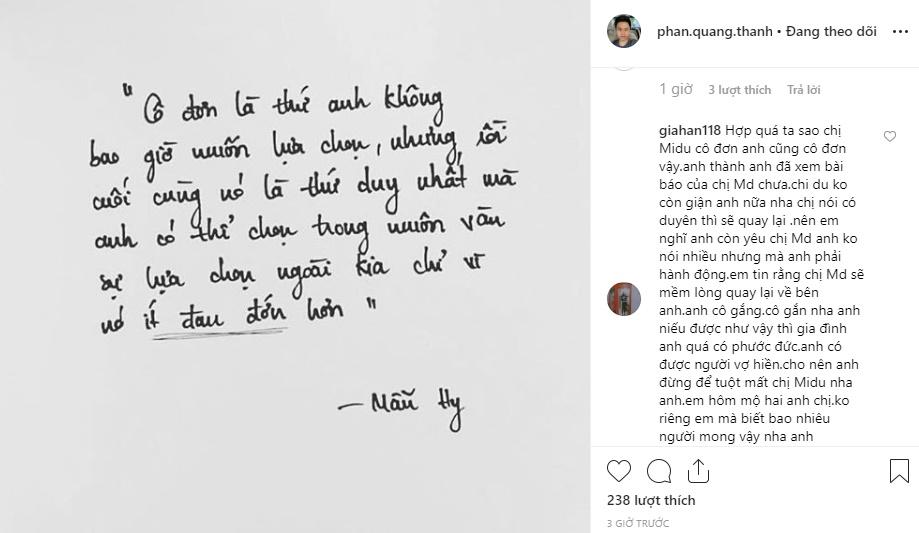 " Cô đơn là thứ anh không
bao giờ muốn lựa chọn, nhưng rồi
cuối cùng nó là thứ duy nhất mà
anh có thể chọn trong muôn vàn
sự lựa chọn ngoài kia chỉ vì
nó ít đau đớn hơn "
— Mẫu Hy
phan.quang.thanh • Đang theo dõi
1 giờ 3 lượt thích Trả lời
giahan118 Hợp quá ta sao chị
Midu cô đơn anh cũng cô đơn
vậy.anh thành anh đã xem bài
báo của chị Md chưa.chi du ko
còn giận anh nữa nha chị nói có
duyên thì sẽ quay lại .nên em
nghĩ anh còn yêu chị Md anh ko
nói nhiều nhưng mà anh phải
hành động.em tin rằng chị Md sẽ
mềm lòng quay lại về bên
anh.anh cô gắng.cô gắn nha anh
niếu được như vậy thì gia đình
anh quá có phước đức.anh có
được người vợ hiền.cho nên anh
đừng để tuột mất chị Midu nha
anh.em hôm mộ hai anh chị.ko
riêng em mà biết bao nhiêu
người mong vậy nha anh
238 lượt thích
3 GIỜ TRƯỚC